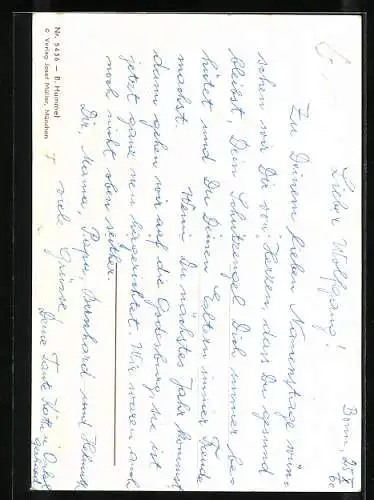 Bonn, 25. X. 60
Lieber Wolfgang!
Zu Deinem lieben Namenstage wün-
schen wir Dir von Herzen, dass Du gesund
bleibst, Dein Schutzengel Dich immer be-
hütet und Du Deinen Eltern immer Freude
machst. Wenn Du nächstes Jahr kommst,
dann gehen wir auf die Godesburg, sie ist
jetzt ganz neu hergerichtet. Wir waren auch
noch nicht oben seither.
Dir, Mama, Papa, Bernhard und
viele Grüsse!
Deine Tante Käthe u. Onkel
Nr. 5436 — B. Hummel
© Verlag Josef Müller, München